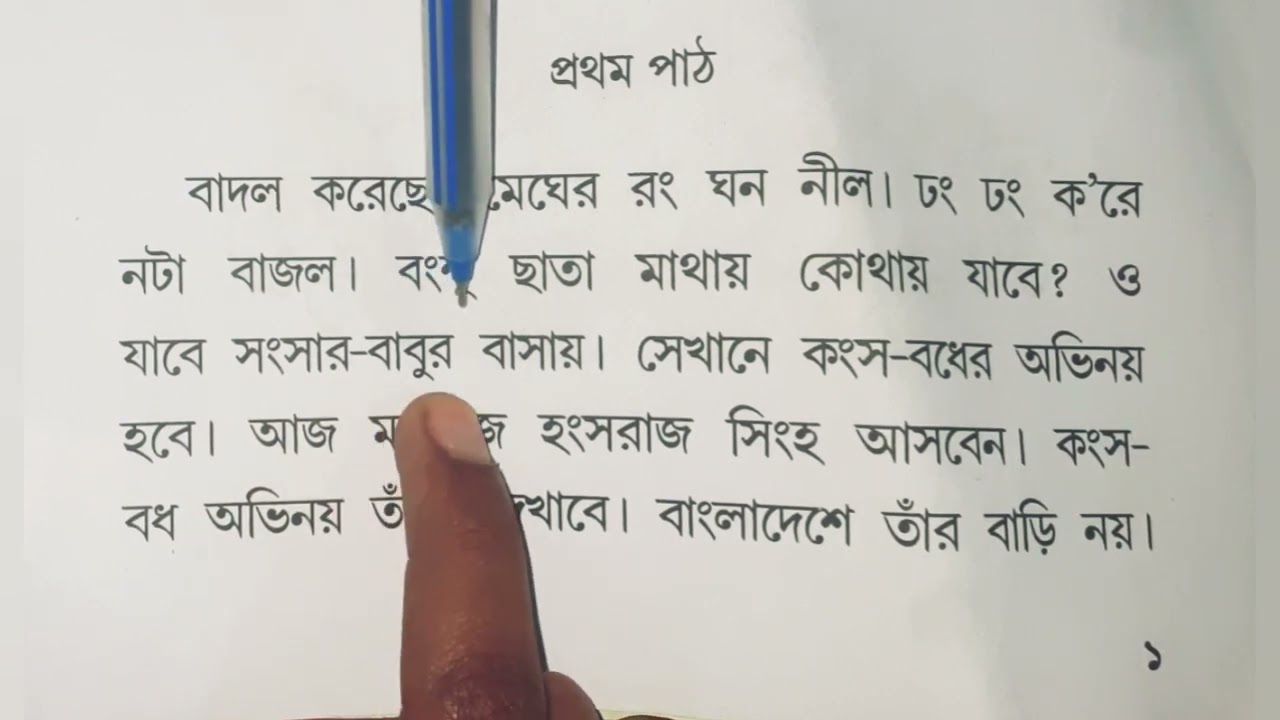 প্রথম পাঠ
বাদল করেছে মেঘের রং ঘন নীল। ঢং ঢং ক’রে
নটা বাজল। ছাতা মাথায় কোথায় যাবে? ও
যাবে সংসার-বাবুর বাসায়। সেখানে কংস-বধের অভিনয়
হবে। আজ হংসরাজ সিংহ আসবেন। কংস-
বধ অভিনয় বাংলাদেশে তাঁর বাড়ি নয়।
১